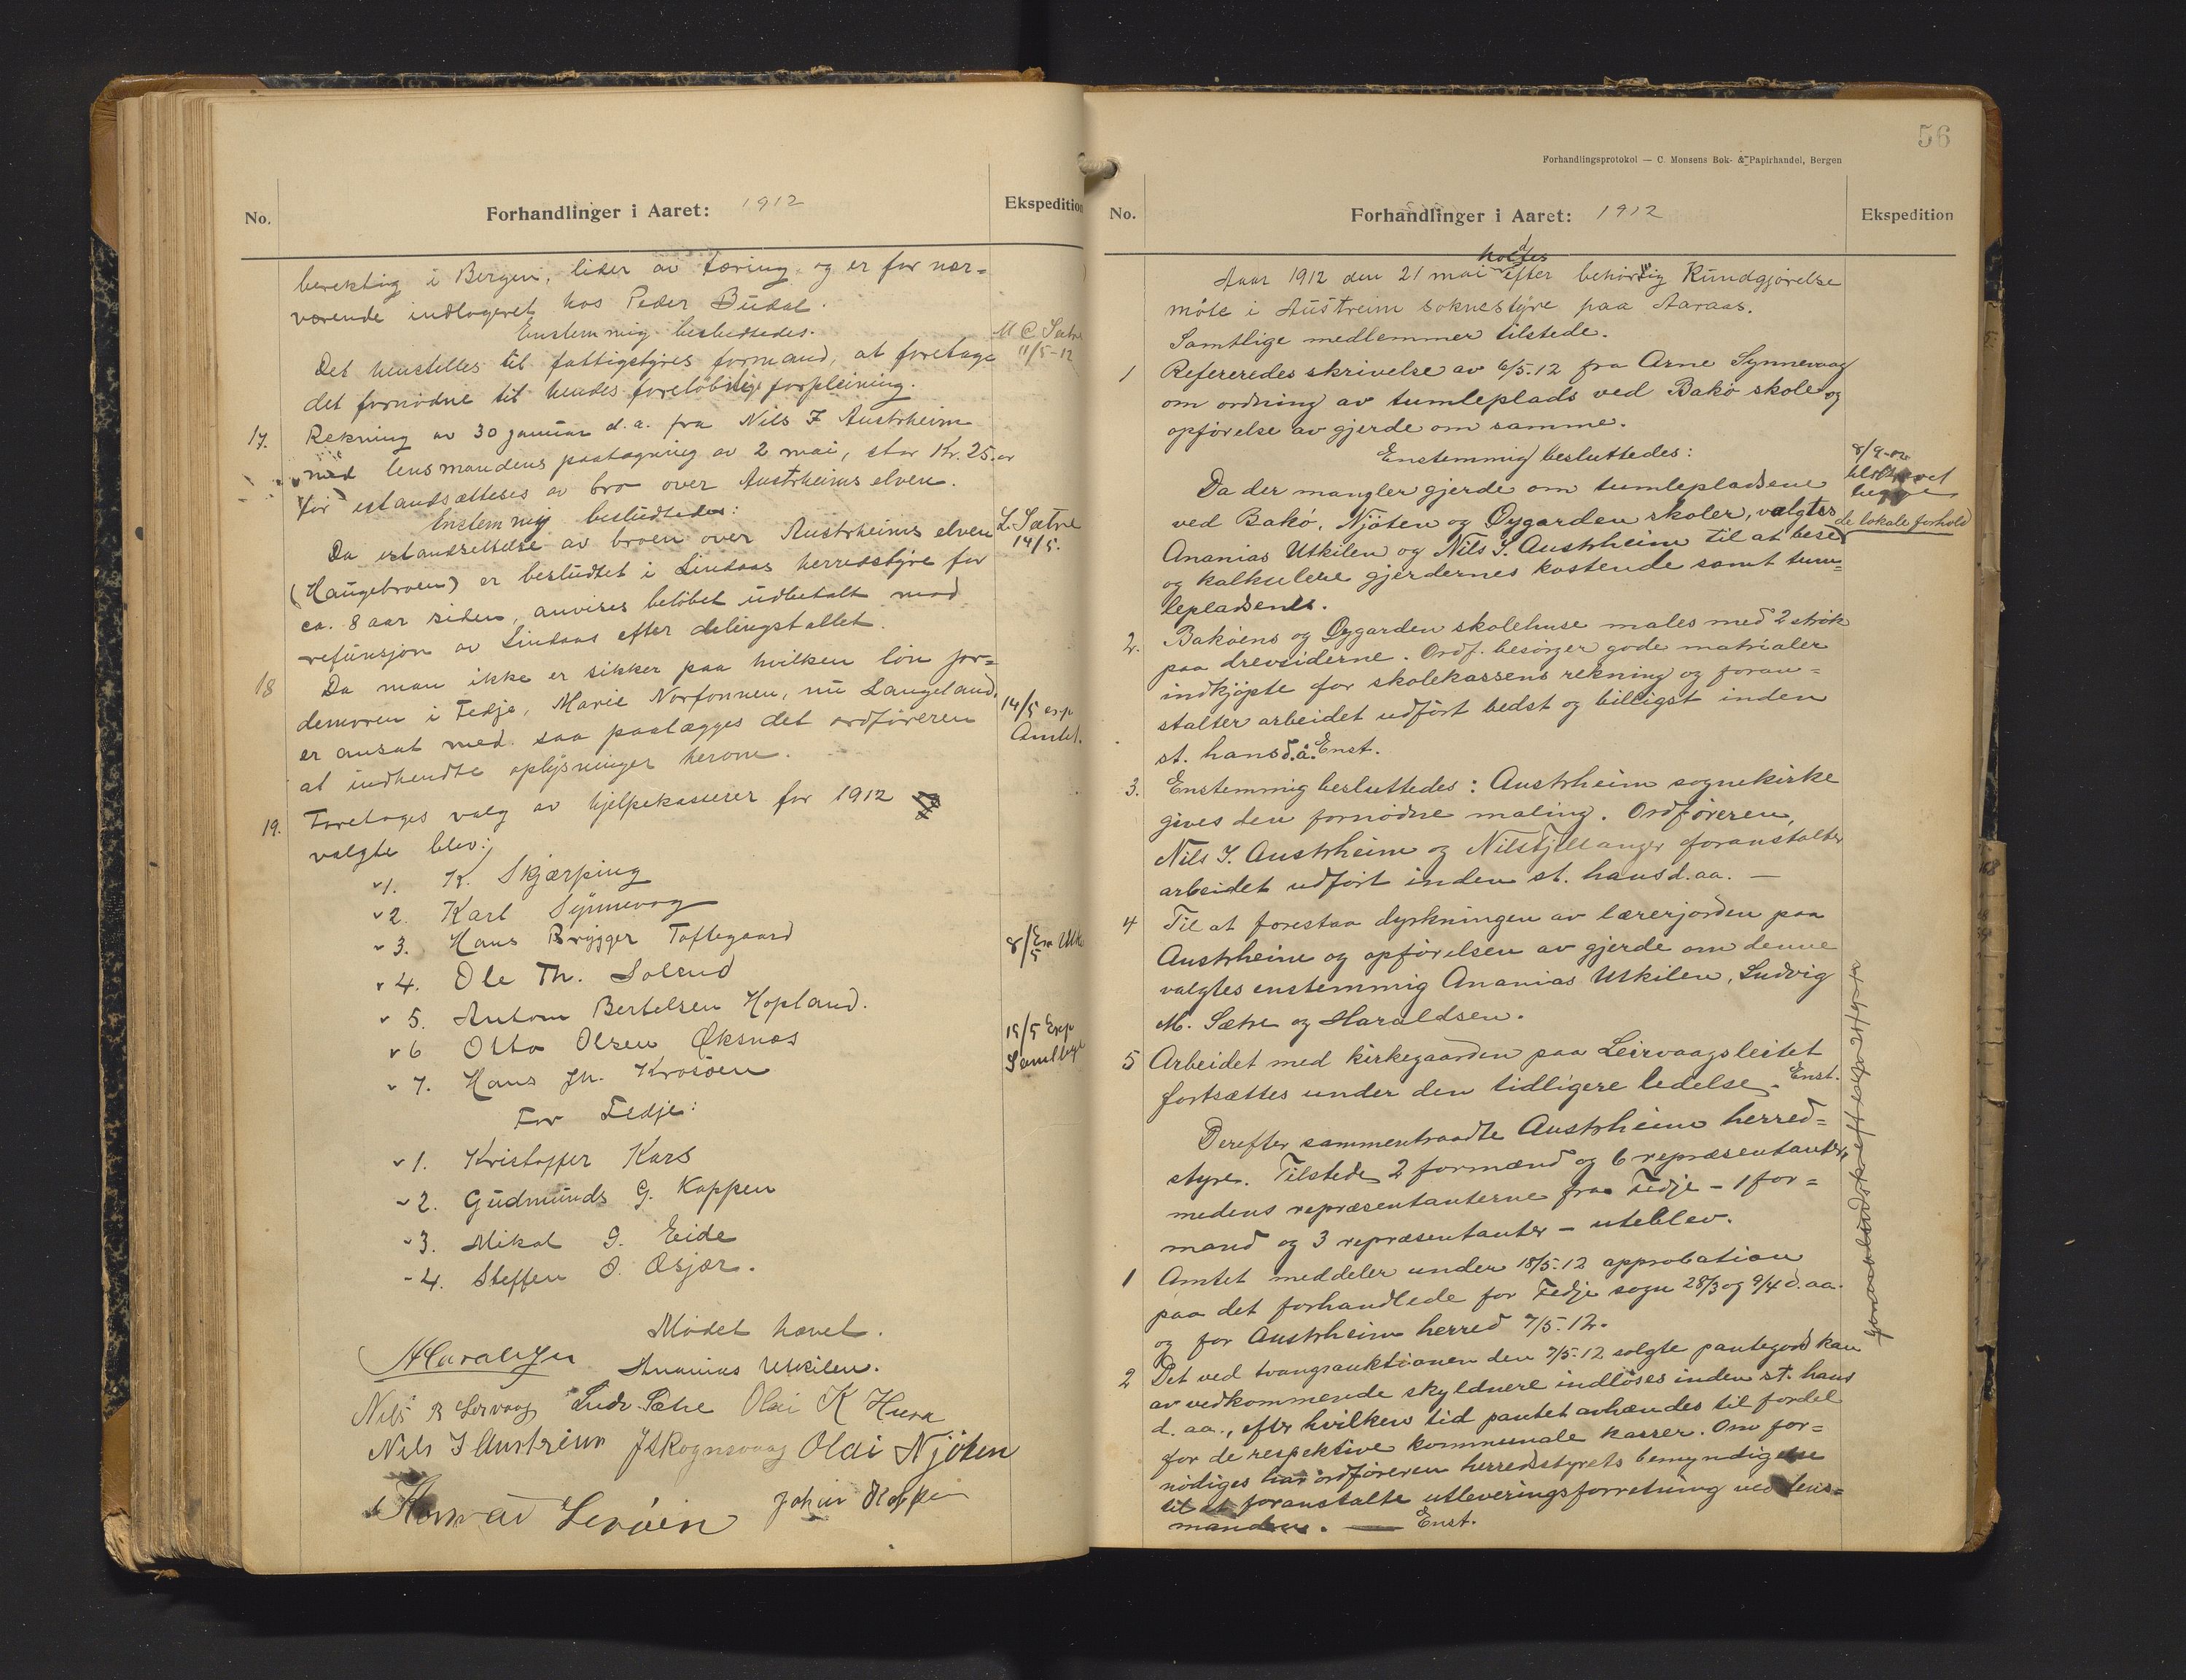 No.
Forhandlinger i Aaret: 1912
Ekspedition
berektig i Bergen, lider av tæring og er for nær=
værende indlogeret hos Peder Budal.
Enstemmig besluttedes.
Det henstilles til fattigstyres formand, at foretage
det fornødne til hendes foreløbige forpleining.
M C Sætre
11/5-12
17. Rekning av 30 januar d.a. fra Nils I Austrheim
med lensmandens paategning av 2 mai, stor Kr. 25.
for istandsættelse av bro over Austrheims elven.
Enstemmig besluttedes:
Da istandsettelse av broen over Austrheims elven
(Haugebroen) er besluttet i Lindaas herredstyre for
ca. 8 aar siden, anvises beløbet udbetalt mod
refunsjon av Lindaas efter delingstallet.
L. Sætre
14/5.
18 Da man ikke er sikker paa hvilken løn jor=
demoren i Fedje, Marie Norfonnen, nu Langeland,
er ansat med saa paalægges det ordføreren
at indhendte oplysninger herom.
14/5 exp
Amtet.
19. Foretages valg av hjelpekasserer for 1912
valgte blev:
1. K. Skjærping
2. Karl Synnevog
3. Hans Brygger Toftegaard
4. Ole Th. Solend
5. Antom Bertelsen Hopland.
6 Otto Olsen Øksnes
7. Hans Jn. Krosøen
For Fedje:
1. Kristoffer Kars
2. Gudmunds G. Koppen
3. Mikal G. Eide
4. Steffen O. Æsjær.
8/5
15/5 Exp
Samtlige
Mødet hævet.
Haraldsen Ananias Utkilen.
Nils R Lervaag Ludv. Sætre Olai K Hura
Nils I Austreim J Rognsvaag Olai Njøten
Konrad Lerøien Johan Koppen
56
Forhandlingsprotokol — C. Monsens Bok- & Papirhandel, Bergen
No.
Forhandlinger i Aaret: 1912
Ekspedition
holdtes
Aaar 1912 den 21 mai efter behørig Kundgjørelse
møte i Austreim soknestyre paa Aaraas.
Samtlige medlemmer tilstede.
1 Refereredes skrivelse av 6/5.12 fra Arne Synnevaag
om ordning av tumleplads ved Bakø skole og
opførelse av gjerde om samme.
Enstemmig besluttedes:
Da der mangler gjerde om tumlepladsene
ved Bakø, Njøten og Øygarden skoler, valgtes
Ananias Utkilen og Nils I. Austrheim til at bese
og kalkulere gjerdernes kostende samt tum=
lepladsenes.
de lokale forhold
2. Bakøens og Øygarden skolehuse males med 2 strøk
paa drevsiderne. Ordf. besørger gode matrialer
indkjøpte for skolekassens rekning og foran=
stalter arbeidet udført bedst og billigst inden
st. hans d.å. Enst.
3. Enstemmig besluttedes: Austrheim sognekirke
gives den fornødne maling. Ordføreren,
Nils I. Austrheim og Nils Fjellanger foranstalter
arbeidet udført inden st. hans d.aa. —
4 Til at forestaa dyrkningen av lærerjorden paa
Austrheim og opførelsen av gjerde om denne
valgtes enstemmig Ananias Utkilen, Ludvig
M. Sætre og Haraldsen.
5 Arbeidet med kirkegaarden paa Leirvaagsleitet
fortsættes under den tidligere ledelse. Enst.
Derefter sammentraadte Austrheim herred=
styre. Tilstede 2 formænd og 6 repræsentanter,
medens repræsentanterne fra Fedje – 1 for=
mand og 3 repræsentanter – uteblev.
1 Amtet meddeler under 18/5.12 approbation
paa det forhandlede for Fedje sogn 28/3 og 9/4 d.aa.
og for Austrheim herred 7/5.12.
2 Det ved tvangsauktionen den 7/5.12 solgte pantegods kan
av vedkommende skyldnere indløses inden st. hans
d. aa., efter hvilken tid pantet avhændes til fordel
for de respektive kommunale kasser. Om for=
nødiges har ordføreren herredsstyrets bemyndigelse
til at foranstalte utleveringsforretning ved lens=
manden. — Enst.